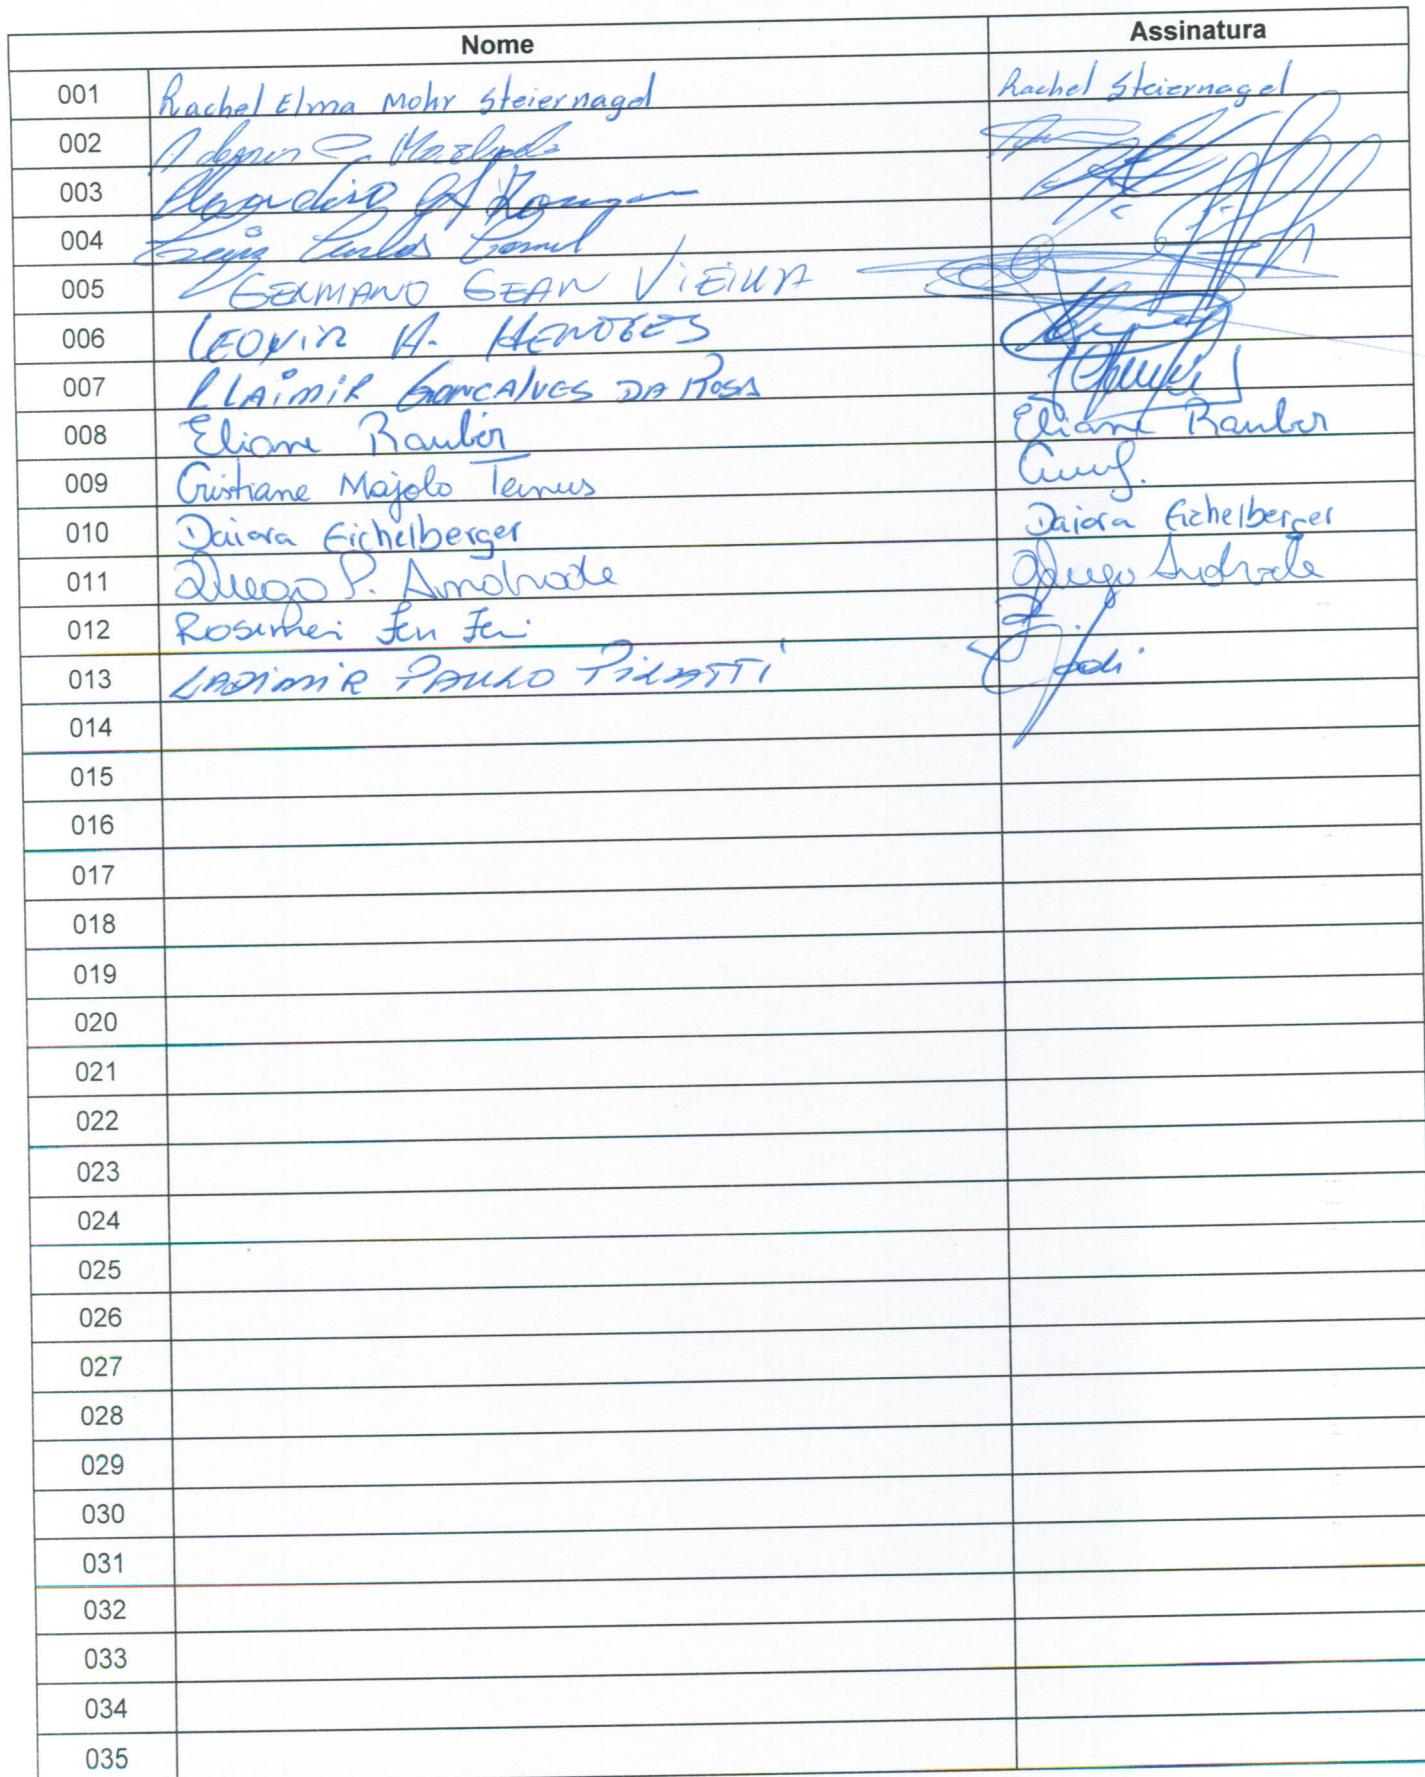 Nome Assinatura
001 Rachel Elma Mohr Steiernagel Rachel Steiernagel
002
003
004 Luiz Carlos
005 GERMANO GEAN VIEIRA
006 LEONIR A. HENDGES
007 CLAIMIR GONCALVES DA ROSA
008 Eliane Rauber Eliane Rauber
009 Cristiane Majolo Ternus
010 Daiara Eichelberger Daiara Eichelberger
011 Diego P. Andrade Diego Andrade
012
013 LADIMIR PAULO PILATTI
014
015
016
017
018
019
020
021
022
023
024
025
026
027
028
029
030
031
032
033
034
035